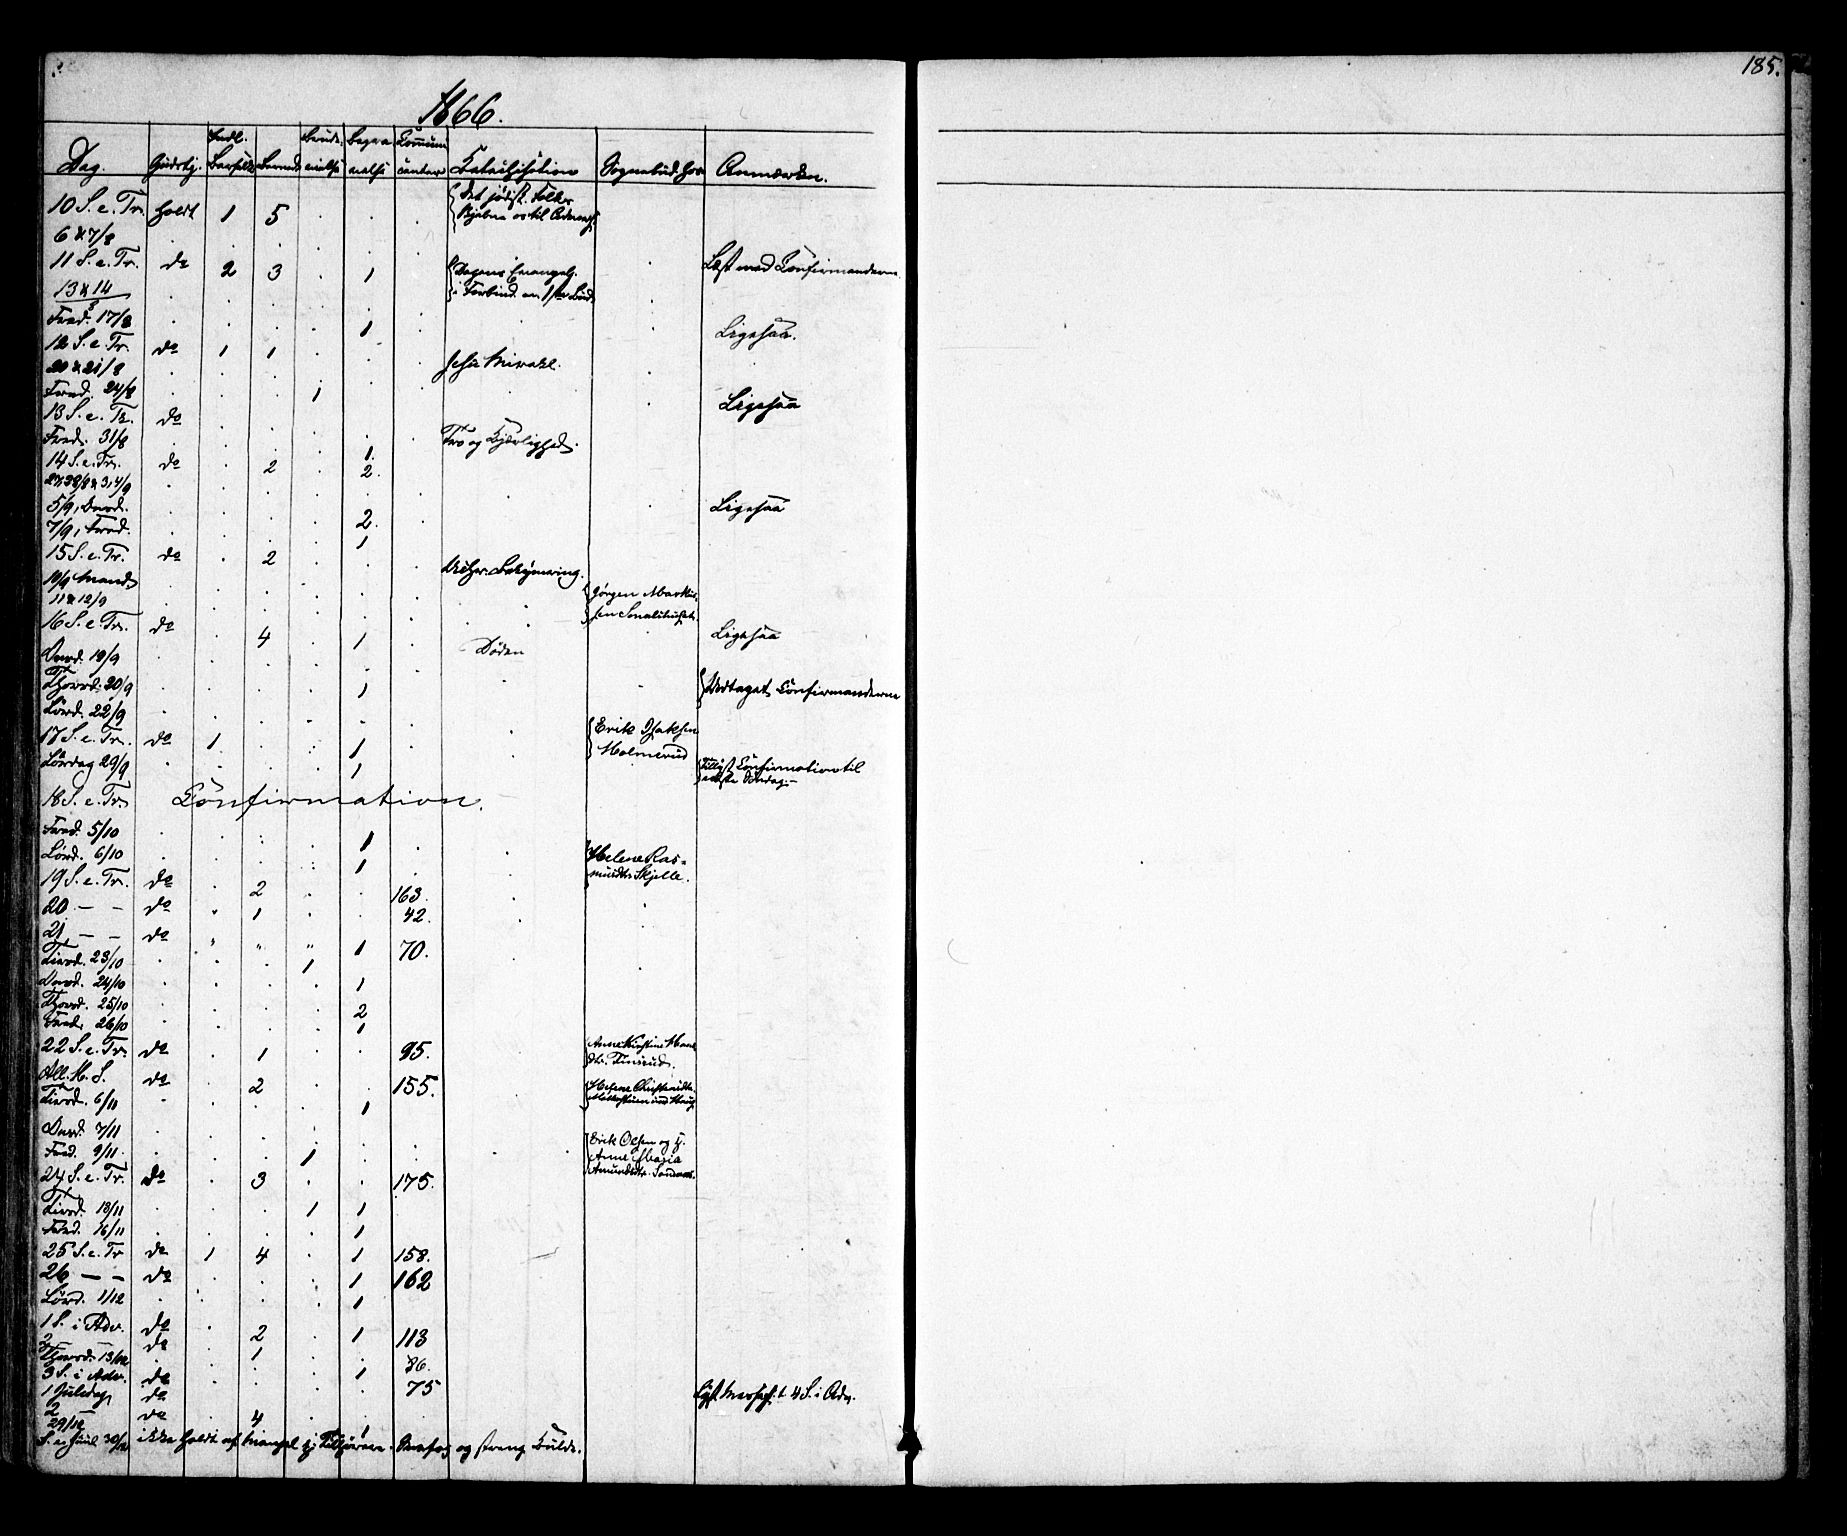 185.
1866.
Dag. Gudstj. Indl. Barselk. Børned. Brudevielse Begravelse Communicantere Catechisation Sognebud hos Anmærkn.
10 S. e. Tr. holdt 1 5 Det jødisk. Folks
6 & 7/8
11 S. e. Tr. do 2 3 1 Dagens Evangel. Læst med Confirmanderne
i Forbind. m. 1ste Bud.
13 & 14/8
Fred. 17/8 1 Ligesaa.
12 S. e. Tr. do 1 1 Jesu Mirakl.
20 & 21/8
Fred. 24/8 1 Ligesaa
13 S. e. Tr. do Tro og Kjærlighed.
Fred. 31/8 1
14 S. e. Tr. do 2 2
27, 28/8 & 3, 4/9 Ligesaa
5/9, Onsd. 2
7/9, Fred. 1
15 S. e. Tr. do 2 Bekymring.
10/9 Mand. Jørgen Markus-
11 & 12/9 sen
16 S. e. Tr. do 4 1 Døden Ligesaa
Onsd. 19/9
Thorsd. 20/9 1 Antaget Confirmanderne
Lørd. 22/9
17 S. e. Tr. do 1 1 Erik Isaksen
Holmerud
Lørdag 29/9 1 Tillyst Confirmation til
næste Søndag.-
18 S. e. Tr. Confirmation.
Fred. 5/10 1
Lørd. 6/10 1 Helene Ras-
musdtr Skjelle.
19 S. e. Tr. do 2 163.
20 - - do 1 42.
21 - - do " " " 1 70.
Tirsd. 23/10 1
Onsd. 24/10 1
Thorsd. 25/10 2
Fred. 26/10 1
22 S. e. Tr. do 1 95. Anne Kirstine Hans
dtr.
All. H. S. do 2 155. Helene
Tirsd. 6/11 1
Onsd. 7/11 Erik Olsen og
Fred. 9/11 1 Anne Maria
24 S. e. Tr. do 3 175. Amundsdtr.
Tirsd. 13/11 1 1
Fred. 16/11 1
25 S. e. Tr do 1 4 1 158.
26 - - do 1 162
Lørd. 1/12 1
1 S. i Adv. do 2 1 113
2 - do 1 36.
Thorsd. 13/12 1
3 S. i Adv. do 75 Lyst t. 4 S. i Adv.
1 Juledag do
2 - do 4
29/12 1
S. e. Juul 30/12 ikke holdt af Mangel p. Tilhørere. Snefog og streng Kulde.